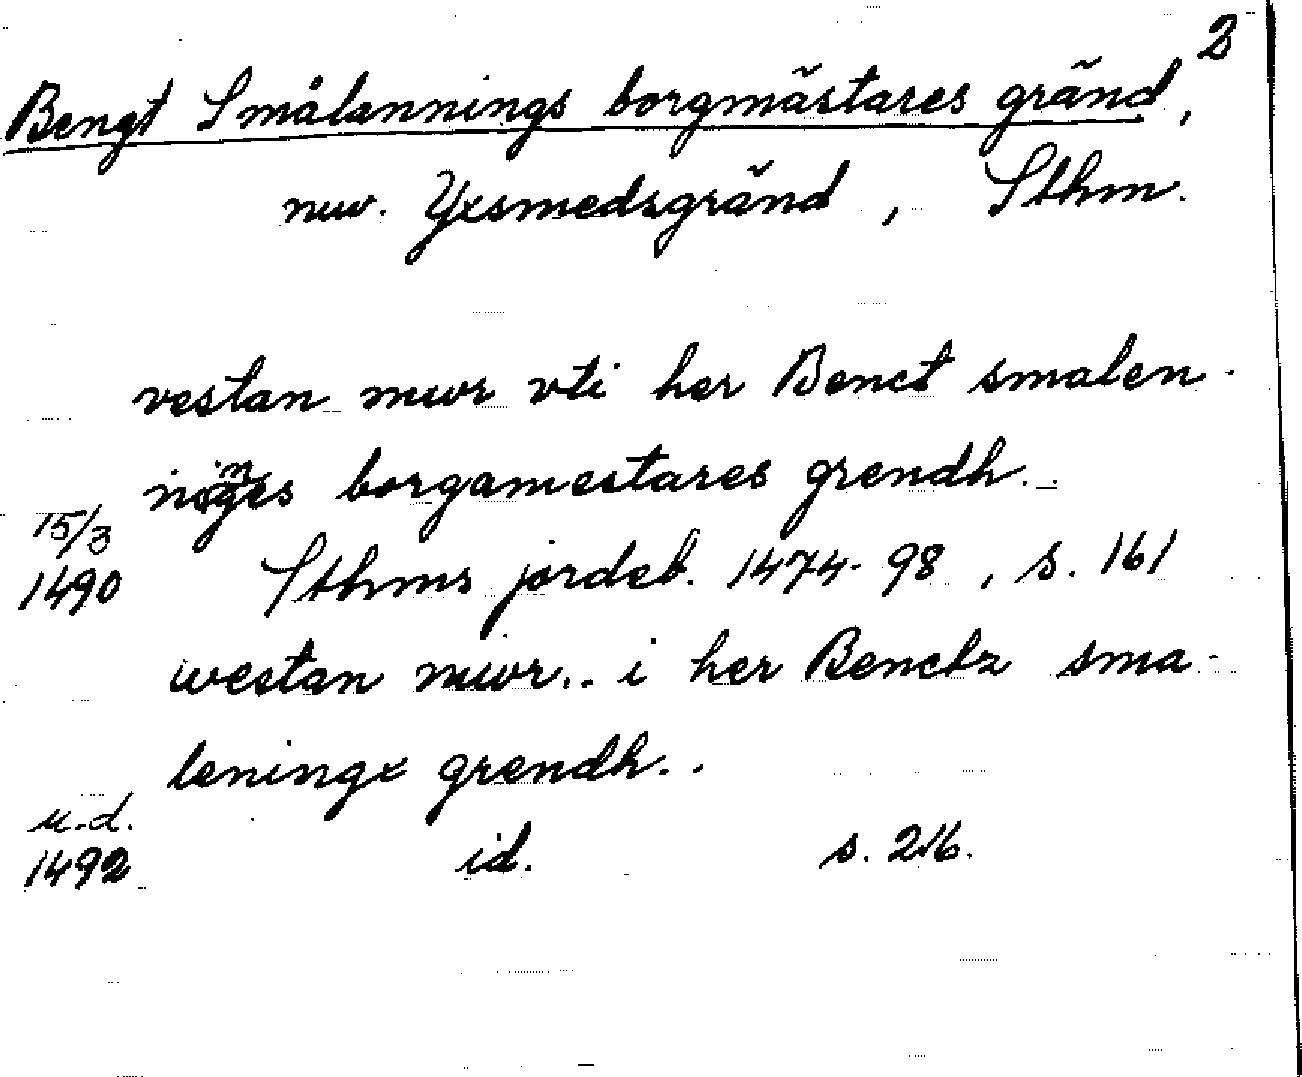 2
Bengt Smålannings borgmästares gränd,
nuv. Yxsmedsgränd, Sthm.
vestan mwr vti her Benct smalen-
inges borgamestares grendh..
15/3
1490 Sthms jordeb. 1474-98, s. 161
westan mwr.. i her Benctz sma-
leningx grendh..
u.d.
1492 id. s. 216.